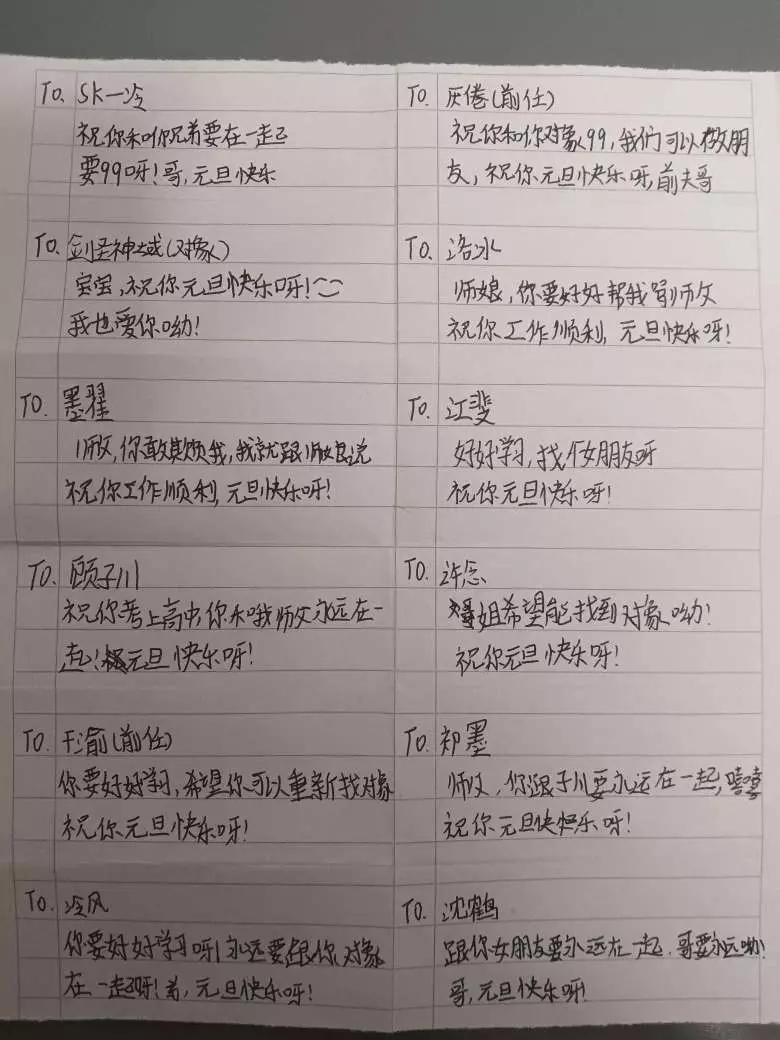 TO. SK一冷
祝你和你兄弟要在一起
要99呀!哥,元旦快乐
TO. 厌倦(前任)
祝你和你对象99,我们可以做朋
友,祝你元旦快乐呀,前夫哥
TO. 剑圣神域(对象)
宝宝,祝你元旦快乐呀!~
我也爱你呦!
TO. 洛冰
师娘,你要好好帮我 师父
祝你工作顺利,元旦快乐呀!
TO. 墨翟
师父,你敢欺负我,我就跟师娘说
祝你工作顺利,元旦快乐呀!
TO. 江斐
好好学习,找个女朋友呀
祝你元旦快乐呀!
TO. 顾子川
祝你考上高中,你和哦师父永远在一
起!元旦快乐呀!
TO. 许念
姐希望能找到对象呦!
祝你元旦快乐呀!
TO. 渝(前任)
你要好好学习,希望你可以重新找对象
祝你元旦快乐呀!
TO. 郑墨
师父,你跟子川要永远在一起,嘻嘻
祝你元旦快乐呀!
TO. 冷风
你要好好学习呀!永远要跟你对象
在一起呀!弟,元旦快乐呀!
TO. 沈鹤
跟你女朋友要永远在一起,哥要永远呦!
哥,元旦快乐呀!